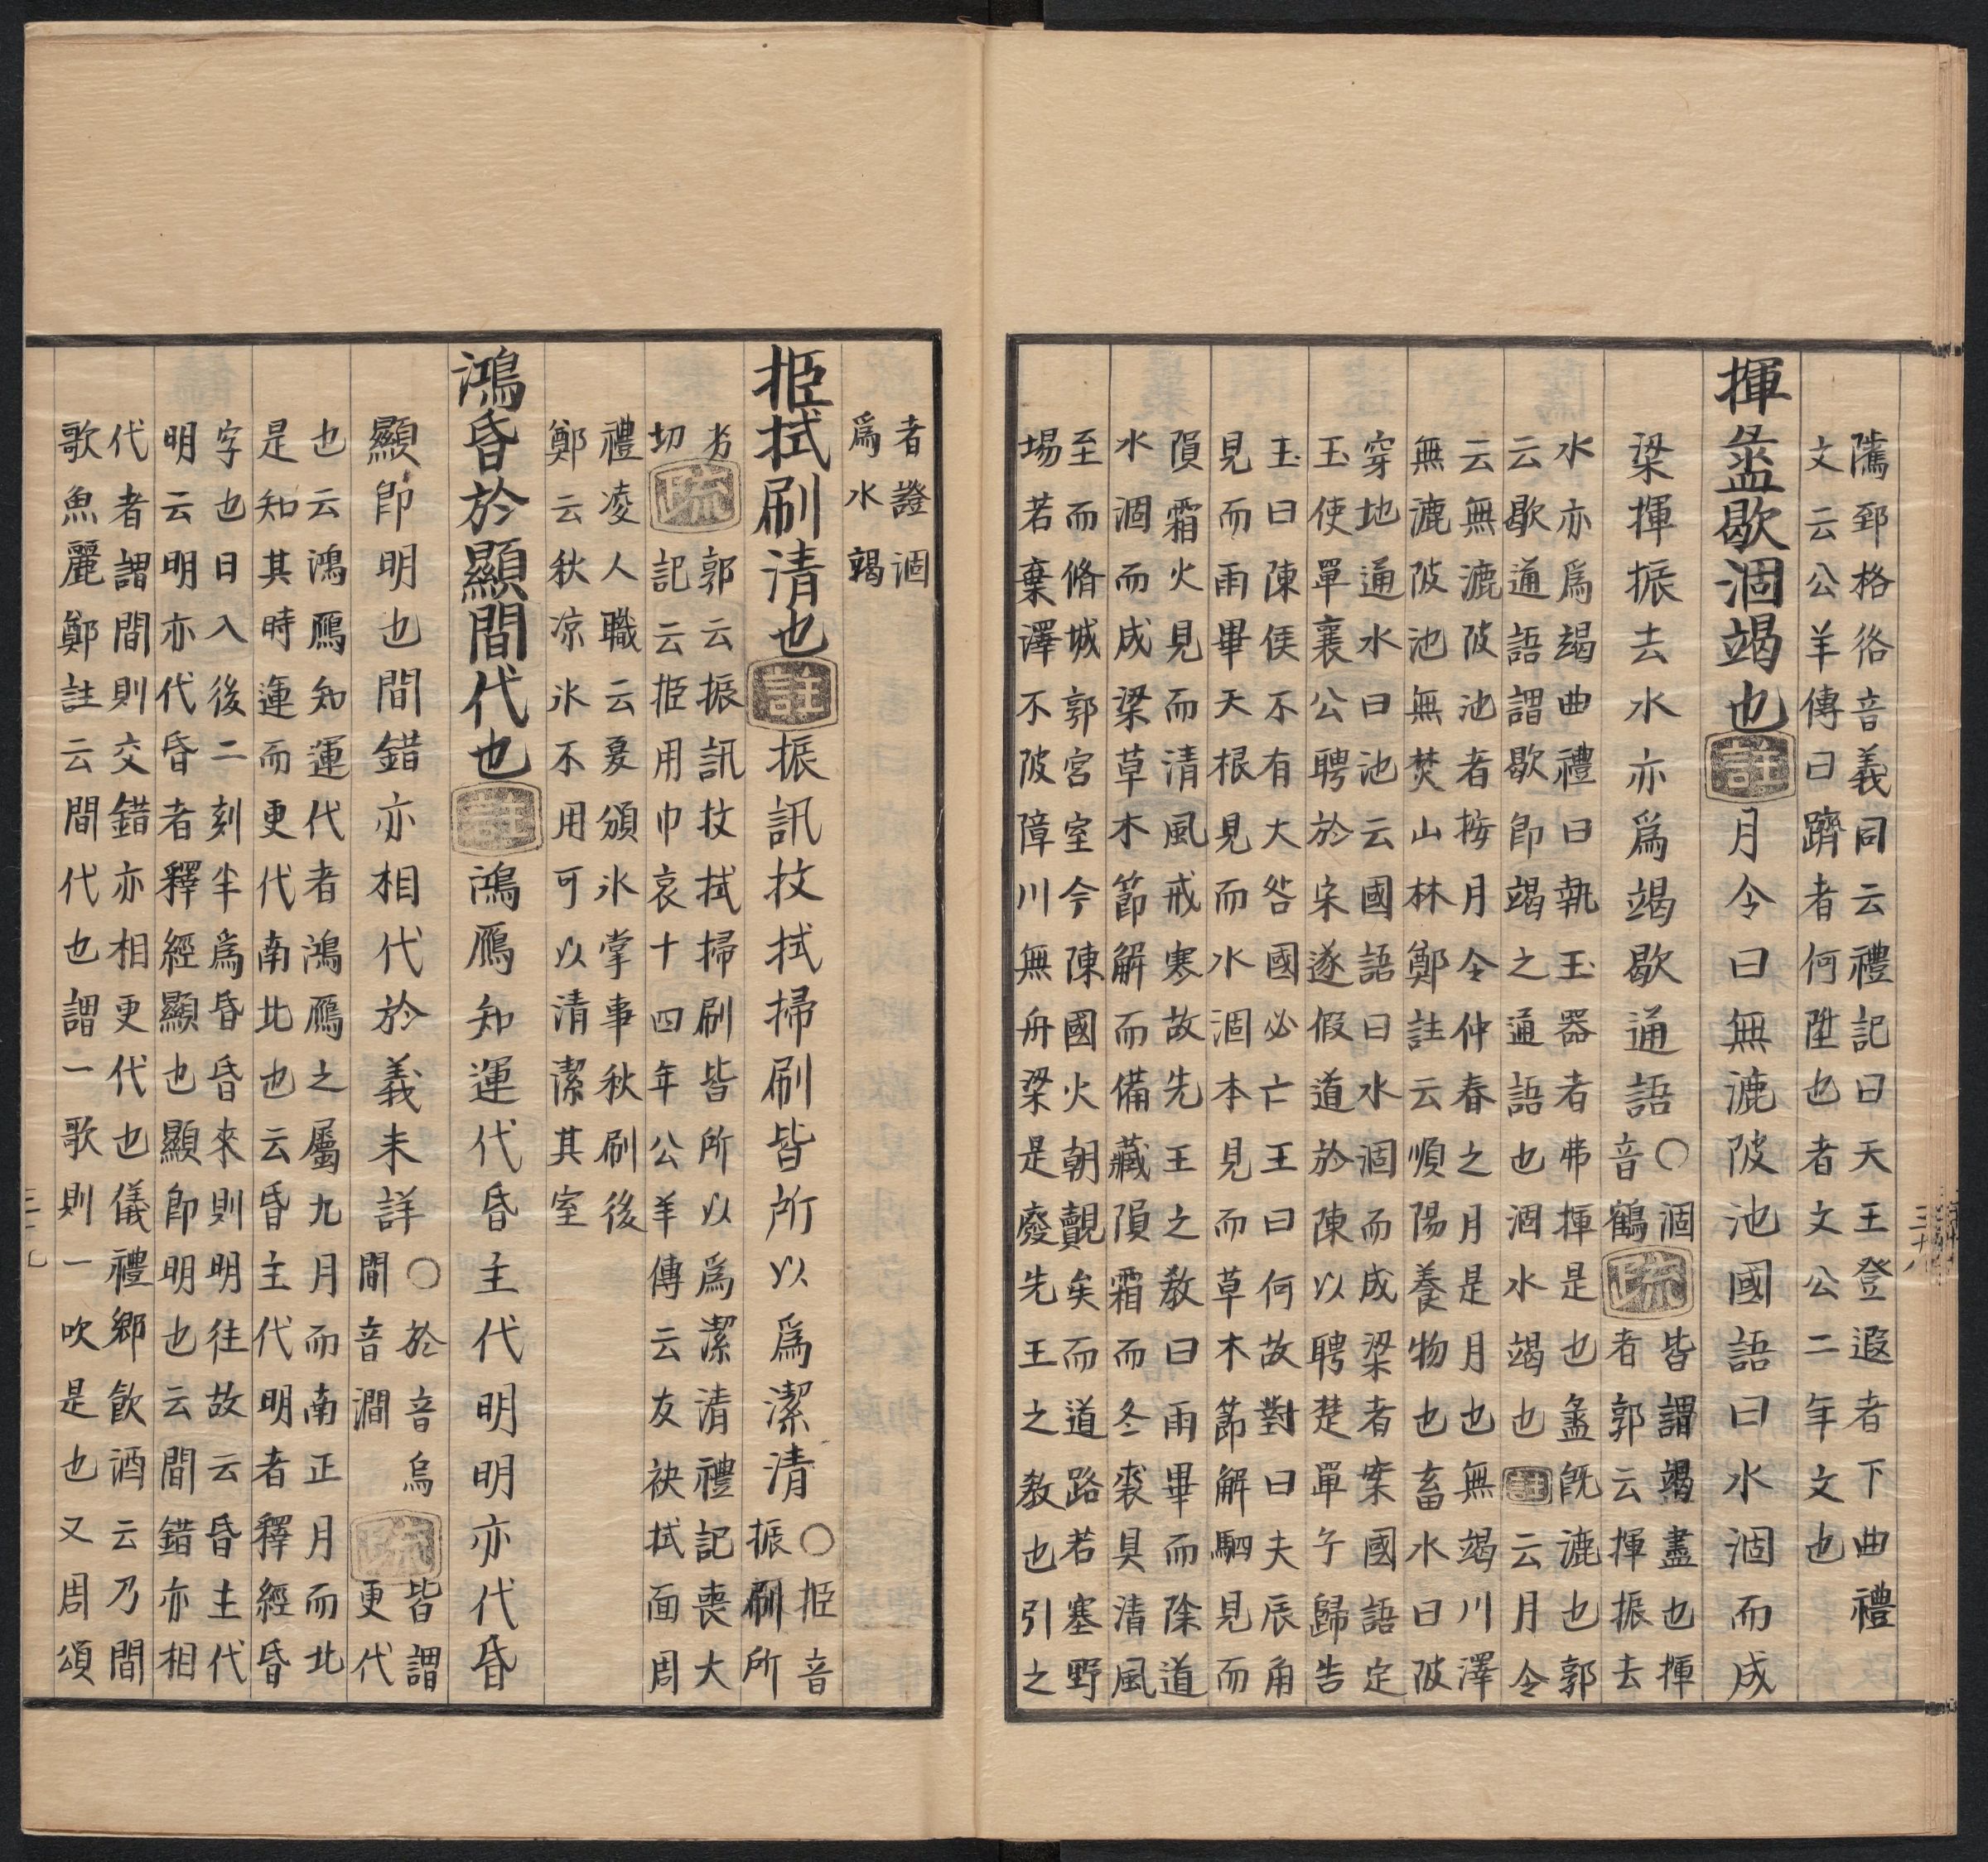 隲郅格佫音義同云禮記曰天王登遐者下曲禮
文云公羊傳曰躋者何陞也者文公二年文也
揮盝歇涸竭也註月令曰無漉陂池國語曰水涸而成
梁揮振去水亦爲竭歇通語○涸
音鶴疏皆謂竭盡也揮
者郭云揮振去
水亦爲竭曲禮曰執玉器者弗揮是也盝旣漉也郭
云歇通語謂歇卽竭之通語也涸水竭也註云月令
云無漉陂池者按月令仲春之月是月也無竭川澤
無漉陂池無焚山林鄭註云順陽養物也畜水曰陂
穿地通水曰池云國語曰水涸而成梁者案國語定
玉使單襄公聘於宋遂假道於陳以聘楚單子歸告
玉曰陳侯不有大咎國必亡王曰何故對曰夫辰角
見而雨畢天根見而水涸本見而草木節解駟見而
隕霜火見而清風戒寒故先王之教曰雨畢而除道
水涸而成梁草木節解而備藏隕霜而冬裘具清風
至而脩城郭宮室今陳國火朝覿矣而道路若塞野
場若棄澤不陂障川無舟梁是廢先王之教也引之
者證涸
爲水竭
挋拭刷清也註振訊抆拭掃刷皆所以爲潔清○挋音
振刷所
劣
切疏郭云振訊抆拭掃刷皆所以爲潔清禮記喪大
記云挋用巾哀十四年公羊傳云反袂拭面周
禮凌人職云夏頒氷掌事秋刷後
鄭云秋凉氷不用可以清潔其室
鴻昏於顯間代也註鴻鴈知運代昏主代明明亦代昏
顯卽明也間錯亦相代於義未詳○於音烏
間音澗疏皆謂
更代
也云鴻鴈知運代者鴻鴈之屬九月而南正月而北
是知其時運而更代南北也云昏主代明者釋經昏
字也日入後二刻半爲昏昏來則明往故云昏主代
明云明亦代昏者釋經顯也顯卽明也云間錯亦相
代者謂間則交錯亦相更代也儀禮鄉飮酒云乃間
歌魚麗鄭註云間代也謂一歌則一吹是也又周頌